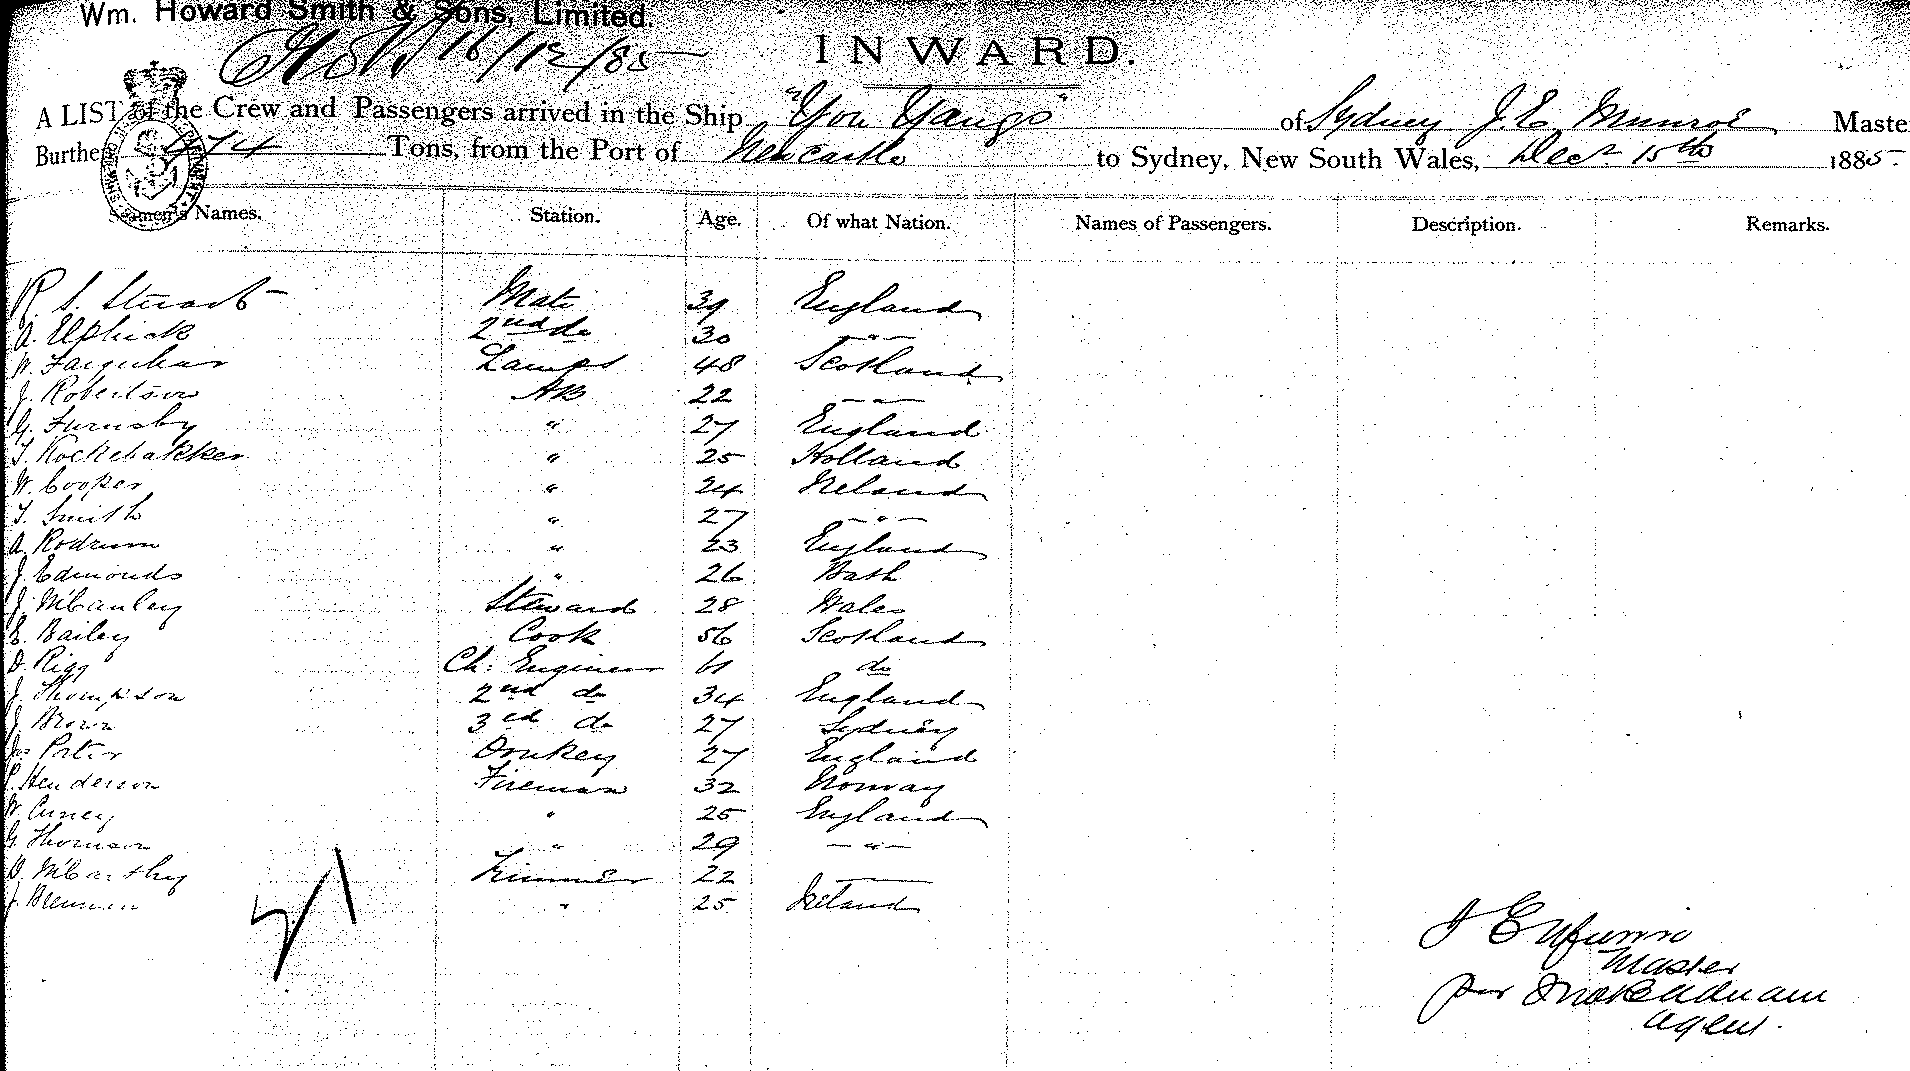 Wm. Howard Smith & Sons, Limited.
16/12/85
INWARD.
A LIST of the Crew and Passengers arrived in the Ship "You Yangs" of Sydney J. E. Munroe Maste
Burthe 474 Tons, from the Port of Newcastle to Sydney, New South Wales, Decr 15th 1885.
Seamen's Names. Station. Age. Of what Nation. Names of Passengers. Description. Remarks.
R. S. Stuart Mate 39 England
A. Elphick 2nd do 30 - " -
W. Farquhar Lamps 48 Scotland
J. Robertson AB 22 - " -
G. Furnsby " 27 England
T. Kockebakker " 25 Holland
W. Cooper " 24 Ireland
T. Smith " 27 - " -
A. Rodrum " 23 England
J. Edmonds " 26 Bath
J. McCauley Steward 28 Wales
E. Bailey Cook 56 Scotland
D. Rigg Ch: Engineer 61 do
J. Thompson 2nd do 34 England
J. Brown 3rd do 27 Sydney
Jas Porter Donkey 27 England
P. Henderson Fireman 32 Norway
W. Curney " 25 England
G. Thomson " 29 - " -
D. McCarthy Trimmer 22
J. Brennan " 25 Ireland
J E Munro
Master
per
Agent.